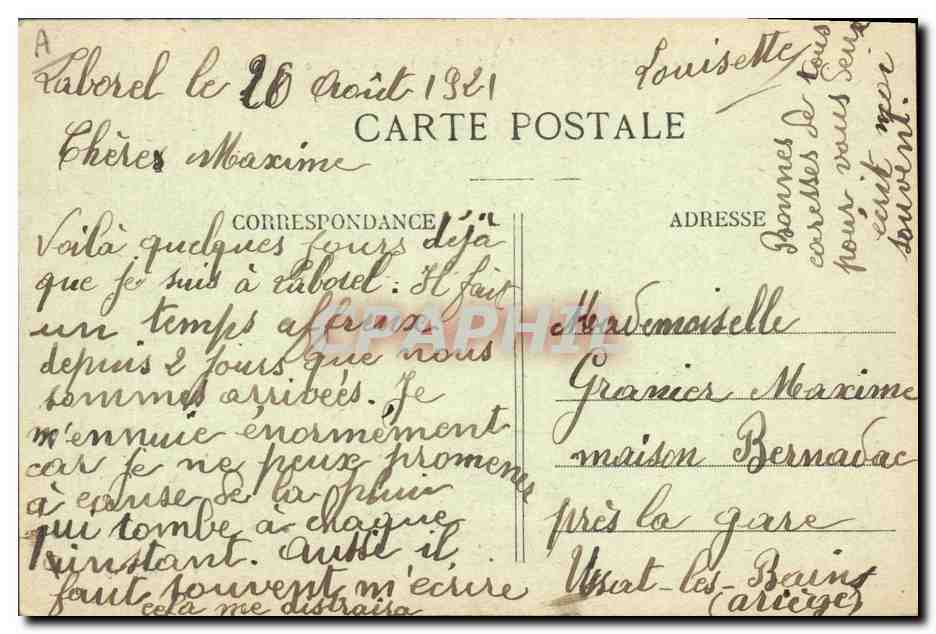 A
Laborel le 26 Août 1921
Louisette
CARTE POSTALE
Chères Maxime
CORRESPONDANCE
Voilà quelques jours déjà
que je suis à Laborel. Il fait
un temps affreux
depuis 2 jours que nous
sommes arrivées. Je
m'ennuie énormément
car je ne peux promener
à cause de la pluie
qui tombe à chaque
instant. Aussi il
faut souvent m'écrire
cela me distraira
ADRESSE
Mademoiselle
Granier Maxime
maison Bernadac
près la gare
Ussat-les-Bains
(ariège)
Bonnes
caresses de tous
pour vous
écrit moi
souvent.
CPAPHIL